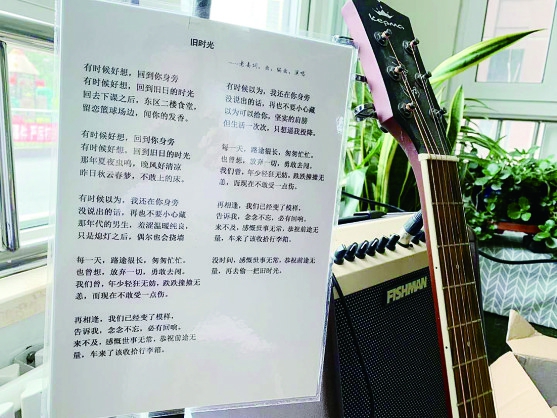 旧时光
有时候好想，回到你身旁
有时候好想，回到旧日的时光
回去下课之后，东区二楼食堂，
留恋篮球场边，闻你的发香。
有时候好想，回到你身旁
有时候好想，回到旧日的时光
那年夏夜虫鸣，晚风好清凉
昨日秋云春梦，不敢上的床。
有时候以为，我还在你身旁
没说出的话，再也不要小心藏
那年代的男生，羞涩温暖纯良，
只是熄灯之后，偶尔也会挠墙
每一天，路途很长，匆匆忙忙。
也曾想，放弃一切，勇敢去闯。
我们曾，年少轻狂无妨，跌跌撞撞无
恙，而现在不敢受一点伤。
再相逢，我们已经变了模样，
告诉我，念念不忘，必有回响。
来不及，感慨世事无常，恭祝前途无
量，车来了该收拾行李箱。
有时候以为，我还在你身旁
没说出的话，再也不要小心藏
以为可以给你，坚实的肩膀
但生活一次次，只想逼我投降。
每一天，路途很长，匆匆忙忙。
也曾想，放弃一切，勇敢去闯。
我们曾，年少轻狂无妨，跌跌撞撞无
恙，而现在不敢受一点伤。
再相逢，我们已经变了模样，
告诉我，念念不忘，必有回响。
来不及，感慨世事无常，恭祝前途无
量，车来了该收拾行李箱。
没时间，感慨世事无常，恭祝前途无
量，再去偷一把旧时光。
kepma
FISHMAN